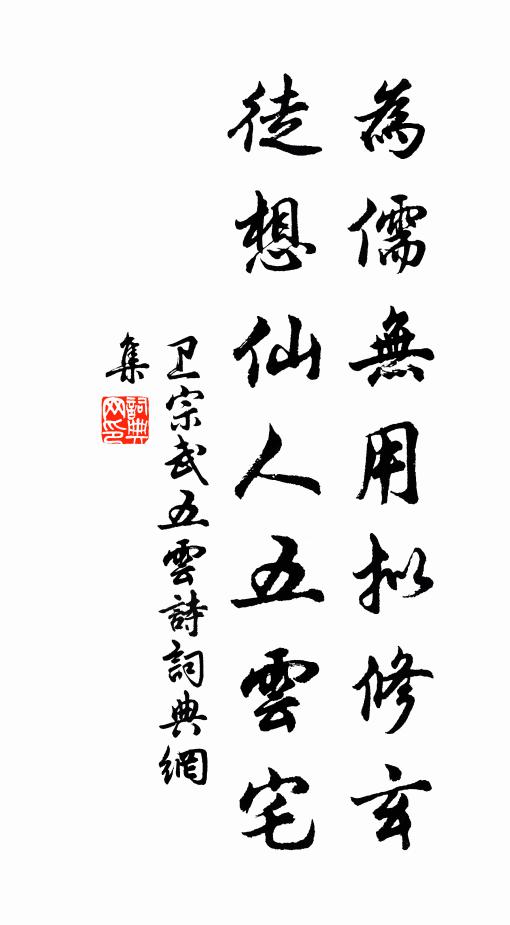 為儒無用拟修玄
徒想仙人五雲宅
卫宗武五雲詩詞典網
集
詞典
网印